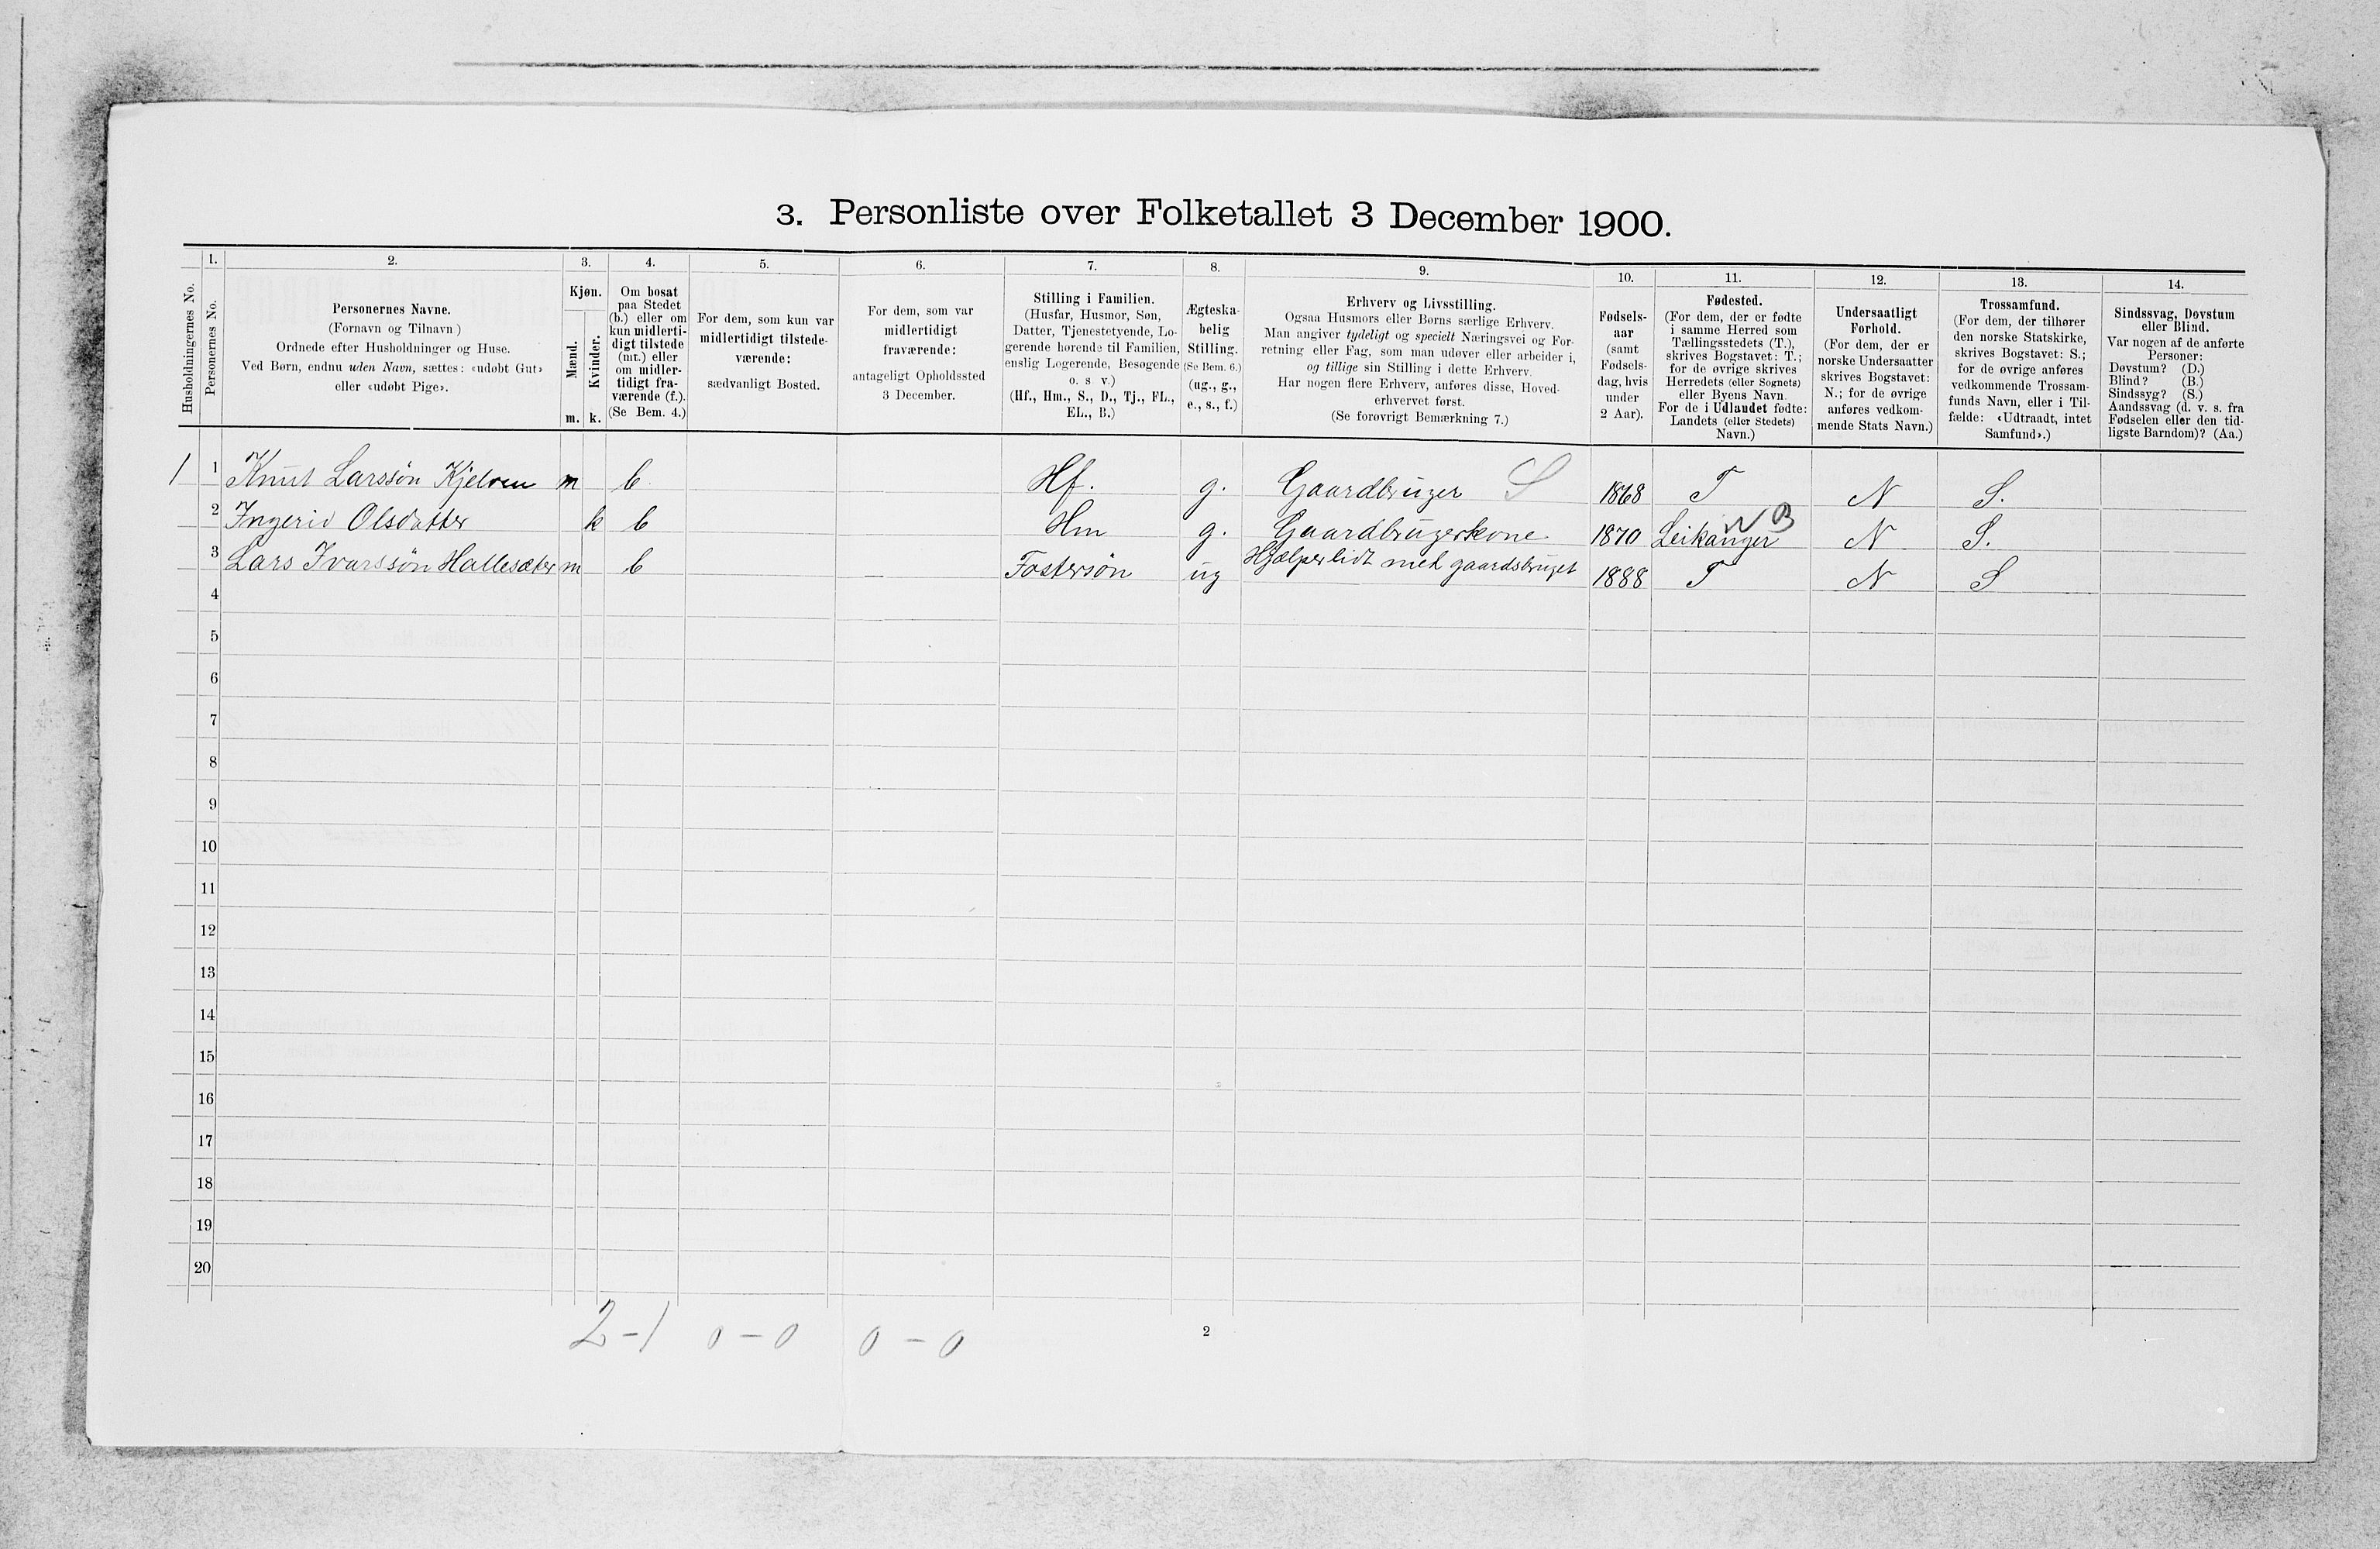 3. Personliste over Folketallet 3 December 1900.
Husholdningernes No.
1.
Personernes No.
2.
Personernes Navne.
(Fornavn og Tilnavn)
Ordnede efter Husholdninger og Huse.
Ved Børn, endnu uden Navn, sættes: «udøbt Gut»
eller «udøbt Pige».
3.
Kjøn.
Mænd.
m.
Kvinder.
k.
4.
Om bosat
paa Stedet
(b.) eller om
kun midlerti-
digt tilstede
(mt.) eller
om midler-
tidigt fra-
værende (f.).
(Se Bem. 4.)
5.
For dem, som kun var
midlertidigt tilstede-
værende:
sædvanligt Bosted.
6.
For dem, som var
midlertidigt
fraværende:
antageligt Opholdssted
3 December.
7.
Stilling i Familien.
(Husfar, Husmor, Søn,
Datter, Tjenestetyende, Lo-
gerende hørende til Familien,
enslig Logerende, Besøgende
o. s v.)
(Hf., Hm., S., D., Tj., FL.,
EL., B.)
8.
Ægteska-
belig
Stilling.
(Se Bem. 6.)
(ug., g.,
e., s., f.)
9.
Erhverv og Livsstilling.
Ogsaa Husmors eller Børns særlige Erhverv.
Man angiver tydeligt og specielt Næringsvei og For-
retning eller Fag, som man udøver eller arbeider i,
og tillige sin Stilling i dette Erhverv.
Har nogen flere Erhverv, anføres disse, Hoved-
erhvervet først.
(Se forøvrigt Bemærkning 7.)
10.
Fødsels-
aar
(samt
Fødsels-
dag, hvis
under
2 Aar).
11.
Fødested.
(For dem, der er fødte
i samme Herred som
Tællingsstedets (T.),
skrives Bogstavet: T.;
for de øvrige skrives
Herredets (eller Sognets)
eller Byens Navn.
For de i Udlandet fødte:
Landets (eller Stedets)
Navn.)
12.
Undersaatligt
Forhold.
(For dem, der er
norske Undersaatter
skrives Bogstavet:
N.; for de øvrige
anføres vedkom-
mende Stats Navn.)
13.
Trossamfund.
(For dem, der tilhører
den norske Statskirke,
skrives Bogstavet: S.;
for de øvrige anføres
vedkommende Trossam-
funds Navn, eller i Til-
fælde: «Udtraadt, intet
Samfund».)
14.
Sindssvag, Døvstum
eller Blind.
Var nogen af de anførte
Personer:
Døvstum? (D.)
Blind? (B.)
Sindssyg? (S.)
Aandssvag (d. v. s. fra
Fødselen eller den tid-
ligste Barndom)? (Aa.)
1 1 Knut Larssön Kjelven m b. Hf. g. Gaardbruger S 1868 T N S.
2 Ingerid Olsdatter k b Hm g. Gaardbrugerkone 1870 Leikanger N B N S.
3 Lars Ivarssön Hallesæter m b — Fostersön ug Hjælper lidt med gaardsbruget 1888 T N S
4
5
6
7
8
9
10
11
12
13
14
15
16
17
18
19
20
2-1 0-0 0-0
2